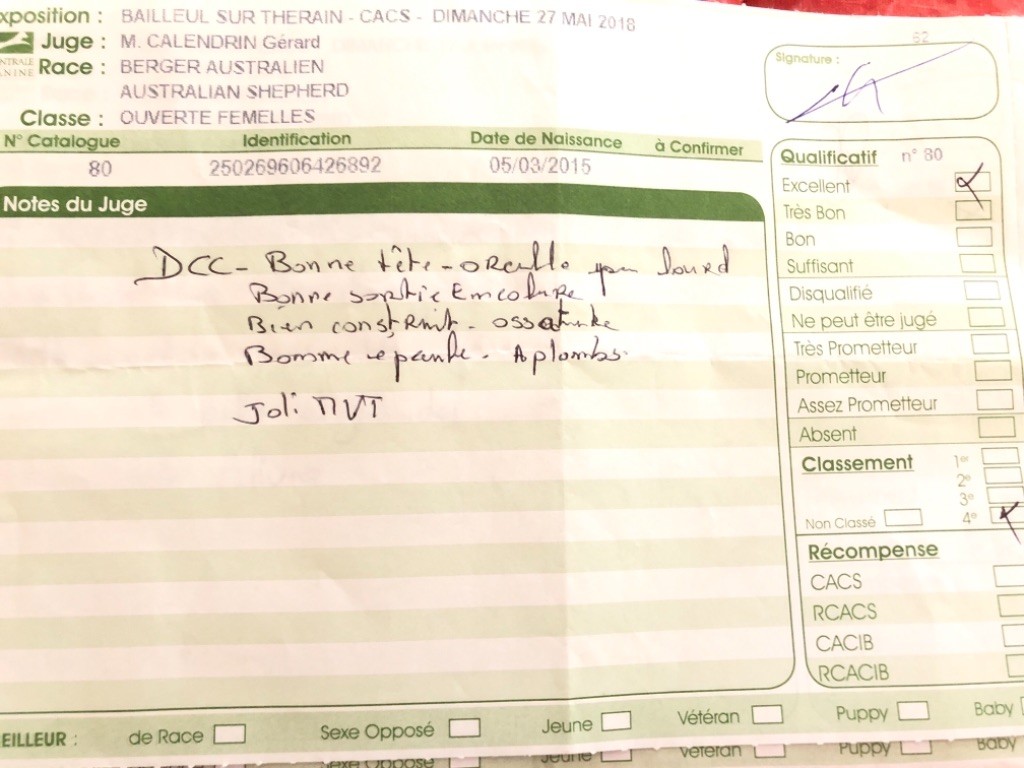 xposition : BAILLEUL SUR THERAIN - CACS - DIMANCHE 27 MAI 2018
Juge : M. CALENDRIN Gérard
NTRALE
ANINE
Race : BERGER AUSTRALIEN
AUSTRALIAN SHEPHERD
Classe : OUVERTE FEMELLES
62
Signature :
N° Catalogue Identification Date de Naissance à Confirmer
80 250269606426892 05/03/2015
Notes du Juge
DCC - Bonne tête - oreille peu lourd
Bonne sortie Encolure
Bien construit - ossature
Bonne - Aplombs.
Joli MVT
Qualificatif n° 80
Excellent
Très Bon
Bon
Suffisant
Disqualifié
Ne peut être jugé
Très Prometteur
Prometteur
Assez Prometteur
Absent
Classement 1er
2e
3e
Non Classé 4e
Récompense
CACS
RCACS
CACIB
RCACIB
EILLEUR : de Race Sexe Opposé Jeune Vétéran Puppy Baby
Sexe Opposé Jeune Vétéran Puppy Baby